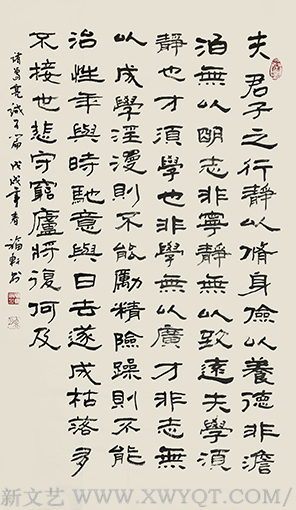 夫君子之行静以脩身儉以養德非澹
泊無以明志非寧静無以致遠夫學須
静也才須學也非學無以廣才非志無
以成學滛漫則不能勵精險躁則不能
治性年與時馳意與日去遂成枯落多
不接世悲守窮廬將復何及
诸葛亮誡子篇 戊戌年春 福軒书
新文艺 WWW.XWYQT.COM/